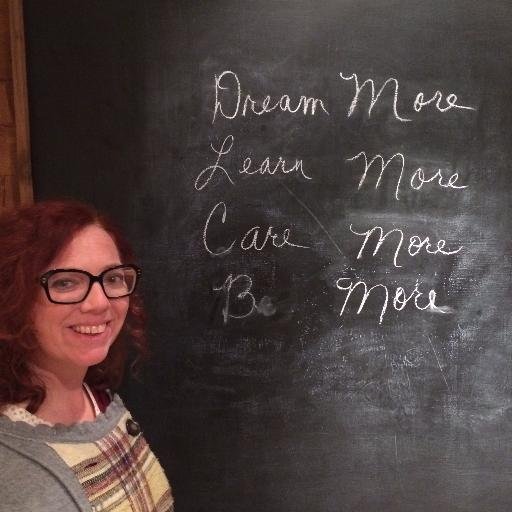 Dream More
Learn More
Care More
Be More